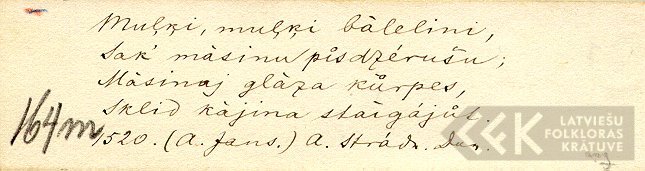 Muļķi, muļķi bālelini,
Sak' māsinu pîsdzérušu;
Māsinaj glāza kůrpes,
Sklid kājina stàigájůt.
164m
1520. (A. Jans.) A. Strādn. Dau.
LATVIEŠU
FOLKLORAS
KRĀTUVE